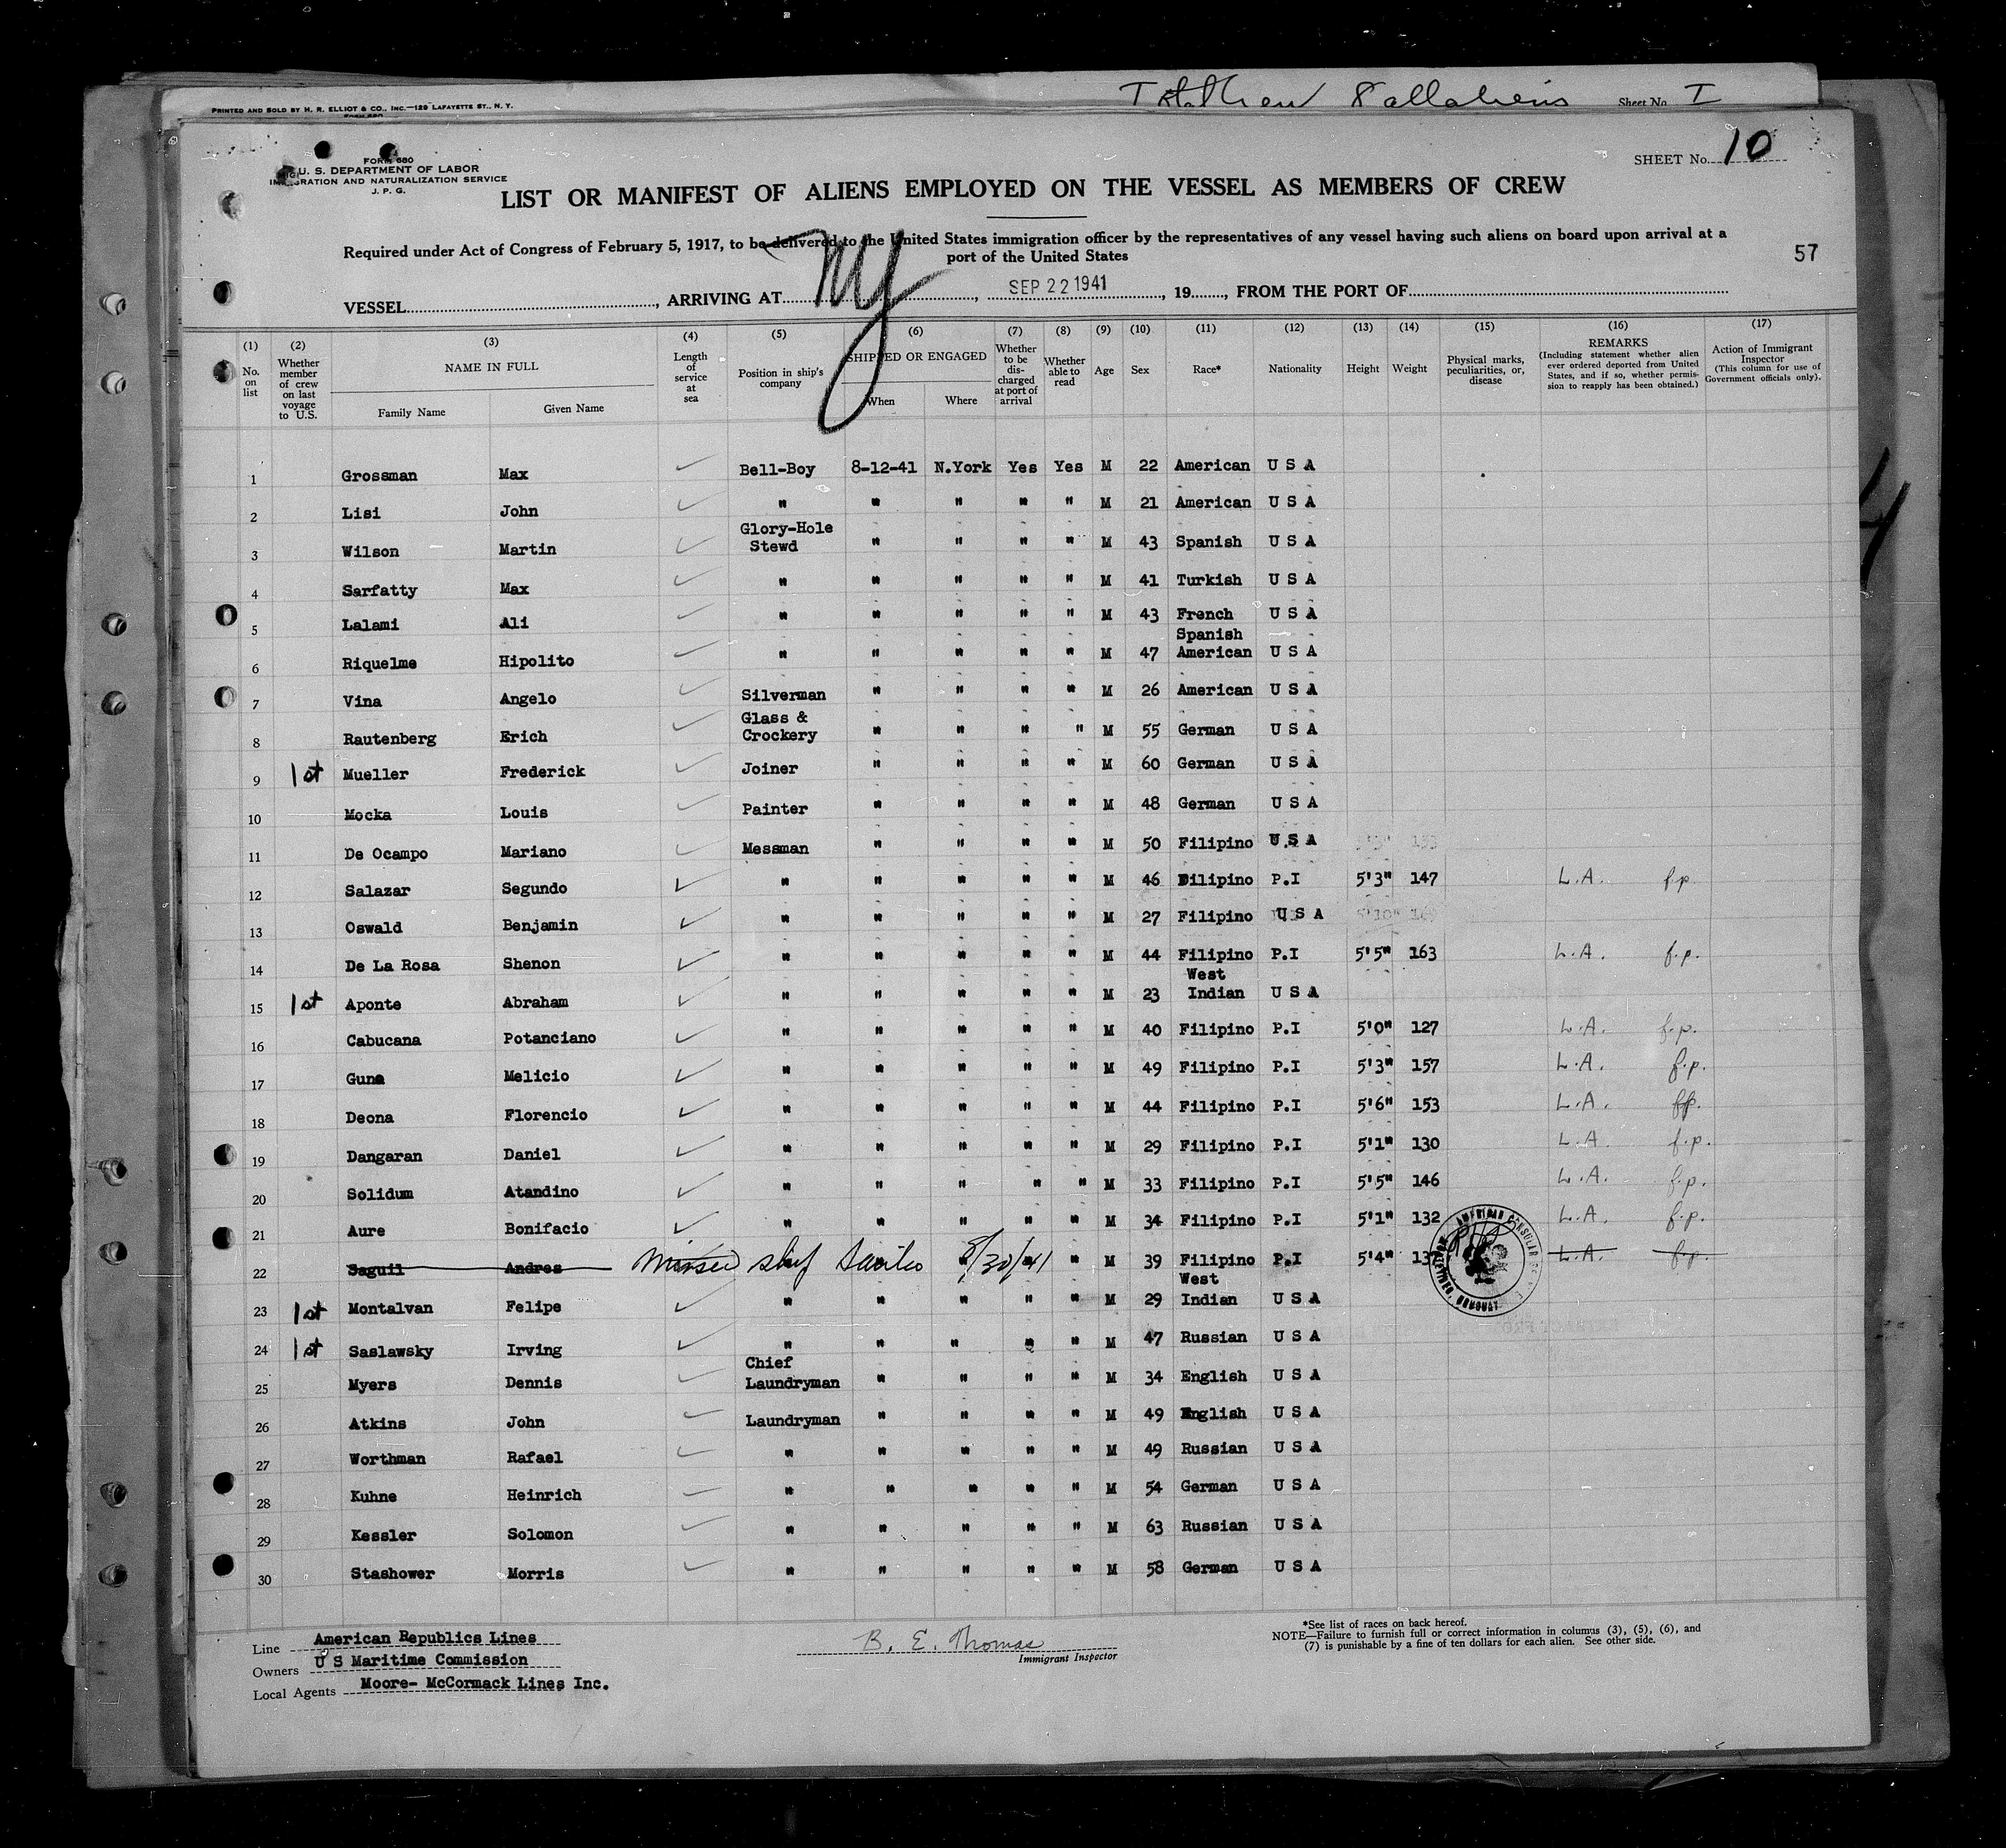 PRINTED AND SOLD BY H. R. ELLIOT & CO., INC.—129 LAFAYETTE ST., N. Y.
Sheet No. I
FORM 680
U. S. DEPARTMENT OF LABOR
IMMIGRATION AND NATURALIZATION SERVICE
J. P. G.
SHEET No. 10
LIST OR MANIFEST OF ALIENS EMPLOYED ON THE VESSEL AS MEMBERS OF CREW
Required under Act of Congress of February 5, 1917, to be delivered to the United States immigration officer by the representatives of any vessel having such aliens on board upon arrival at a
port of the United States
57
VESSEL, ARRIVING AT NY, SEP 22 1941, 19, FROM THE PORT OF
(1) (2) (3) (4) (5) (6) (7) (8) (9) (10) (11) (12) (13) (14) (15) (16) (17)
No. on list
Whether member of crew on last voyage to U.S.
NAME IN FULL
Family Name
Given Name
Length of service at sea
Position in ship's company
SHIPPED OR ENGAGED
When
Where
Whether to be discharged at port of arrival
Whether able to read
Age
Sex
Race*
Nationality
Height
Weight
Physical marks, peculiarities, or, disease
REMARKS
(Including statement whether alien ever ordered deported from United States, and if so, whether permission to reapply has been obtained.)
Action of Immigrant Inspector
(This column for use of Government officials only).
1 Grossman Max Bell-Boy 8-12-41 N.York Yes Yes M 22 American U S A
2 Lisi John " " " " " M 21 American U S A
3 Wilson Martin Glory-Hole Stewd " " " " M 43 Spanish U S A
4 Sarfatty Max " " " " " M 41 Turkish U S A
5 Lalami Ali " " " " " M 43 French U S A
6 Riquelme Hipolito " " " " " M 47 Spanish American U S A
7 Vina Angelo Silverman " " " " M 26 American U S A
8 Rautenberg Erich Glass & Crockery " " " " M 55 German U S A
9 1st Mueller Frederick Joiner " " " " M 60 German U S A
10 Mocka Louis Painter " " " " M 48 German U S A
11 De Ocampo Mariano Messman " " " " M 50 Filipino U S A
12 Salazar Segundo " " " " " M 46 Dilipino P.I 5'3" 147 L.A. f.p.
13 Oswald Benjamin " " " " " M 27 Filipino U S A
14 De La Rosa Shenon " " " " " M 44 Filipino P.I 5'5" 163 L.A. f.p.
15 1st Aponte Abraham " " " " " M 23 West Indian U S A
16 Cabucana Potanciano " " " " " M 40 Filipino P.I 5'0" 127 L.A. f.p.
17 Guna Melicio " " " " " M 49 Filipino P.I 5'3" 157 L.A. f.p.
18 Deona Florencio " " " " " M 44 Filipino P.I 5'6" 153 L.A. f.p.
19 Dangaran Daniel " " " " " M 29 Filipino P.I 5'1" 130 L.A. f.p.
20 Solidum Atandino " " " " " M 33 Filipino P.I 5'5" 146 L.A. f.p.
21 Aure Bonifacio " " " " " M 34 Filipino P.I 5'1" 132 L.A. f.p.
22 Saguil Andres Missed ship Santos 8/30/41 " M 39 Filipino P.I 5'4" L.A. f.p.
23 1st Montalvan Felipe " " " " " M 29 West Indian U S A
24 1st Saslawsky Irving " " " " " M 47 Russian U S A
25 Myers Dennis Chief Laundryman " " " " M 34 English U S A
26 Atkins John Laundryman " " " " M 49 English U S A
27 Worthman Rafael " " " " " M 49 Russian U S A
28 Kuhne Heinrich " " " " " M 54 German U S A
29 Kessler Solomon " " " " " M 63 Russian U S A
30 Stashower Morris " " " " " M 58 German U S A
AMERICAN CONSULAR
URUGUAY
Line American Republics Lines
Owners U S Maritime Commission
Local Agents Moore- McCormack Lines Inc.
B. E. Thomas
Immigrant Inspector
*See list of races on back hereof.
NOTE—Failure to furnish full or correct information in columns (3), (5), (6), and
(7) is punishable by a fine of ten dollars for each alien. See other side.